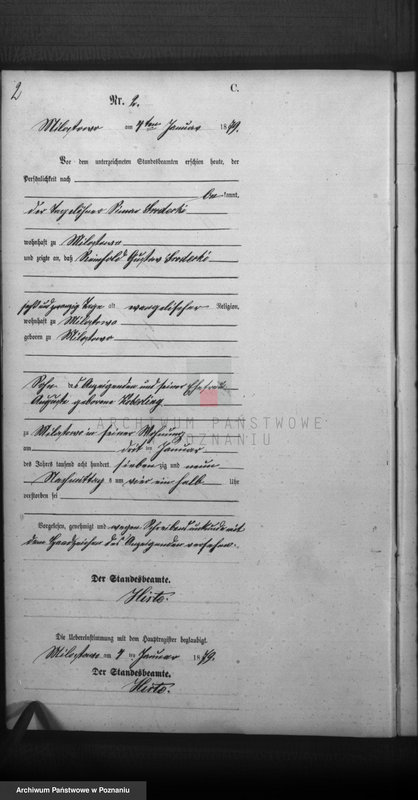 2
C.
Nr. 2.
Milostowo am 4ten Januar 1879.
Vor dem unterzeichneten Standesbeamten erschien heute, der
Persönlichkeit nach
be kannt,
der Tagelöhner
wohnhaft zu Milostowo
und zeigte an, daß Reinhold Gustav
sechs und zwanzig Tage alt evangelischer Religion,
wohnhaft zu Milostowo
geboren zu Milostowo
Sohn des Anzeigenden und seiner Ehefrau
Auguste geborene
ARCHIWUM PAŃSTWOWE
W POZNANIU
zu Milostowo in seiner Wohnung
am drit ten Januar
des Jahrs tausend acht hundert sieben zig und neun
Nachmittag s um vier ein halb Uhr
verstorben sei
Vorgelesen, genehmigt und wegen Schreibensunkunde mit
dem Handzeichen des Anzeigenden versehen.
Der Standesbeamte.
Die Uebereinstimmung mit dem Hauptregister beglaubigt.
Milostowo am 4 ten Januar 1879.
Der Standesbeamte.
Archiwum Państwowe w Poznaniu